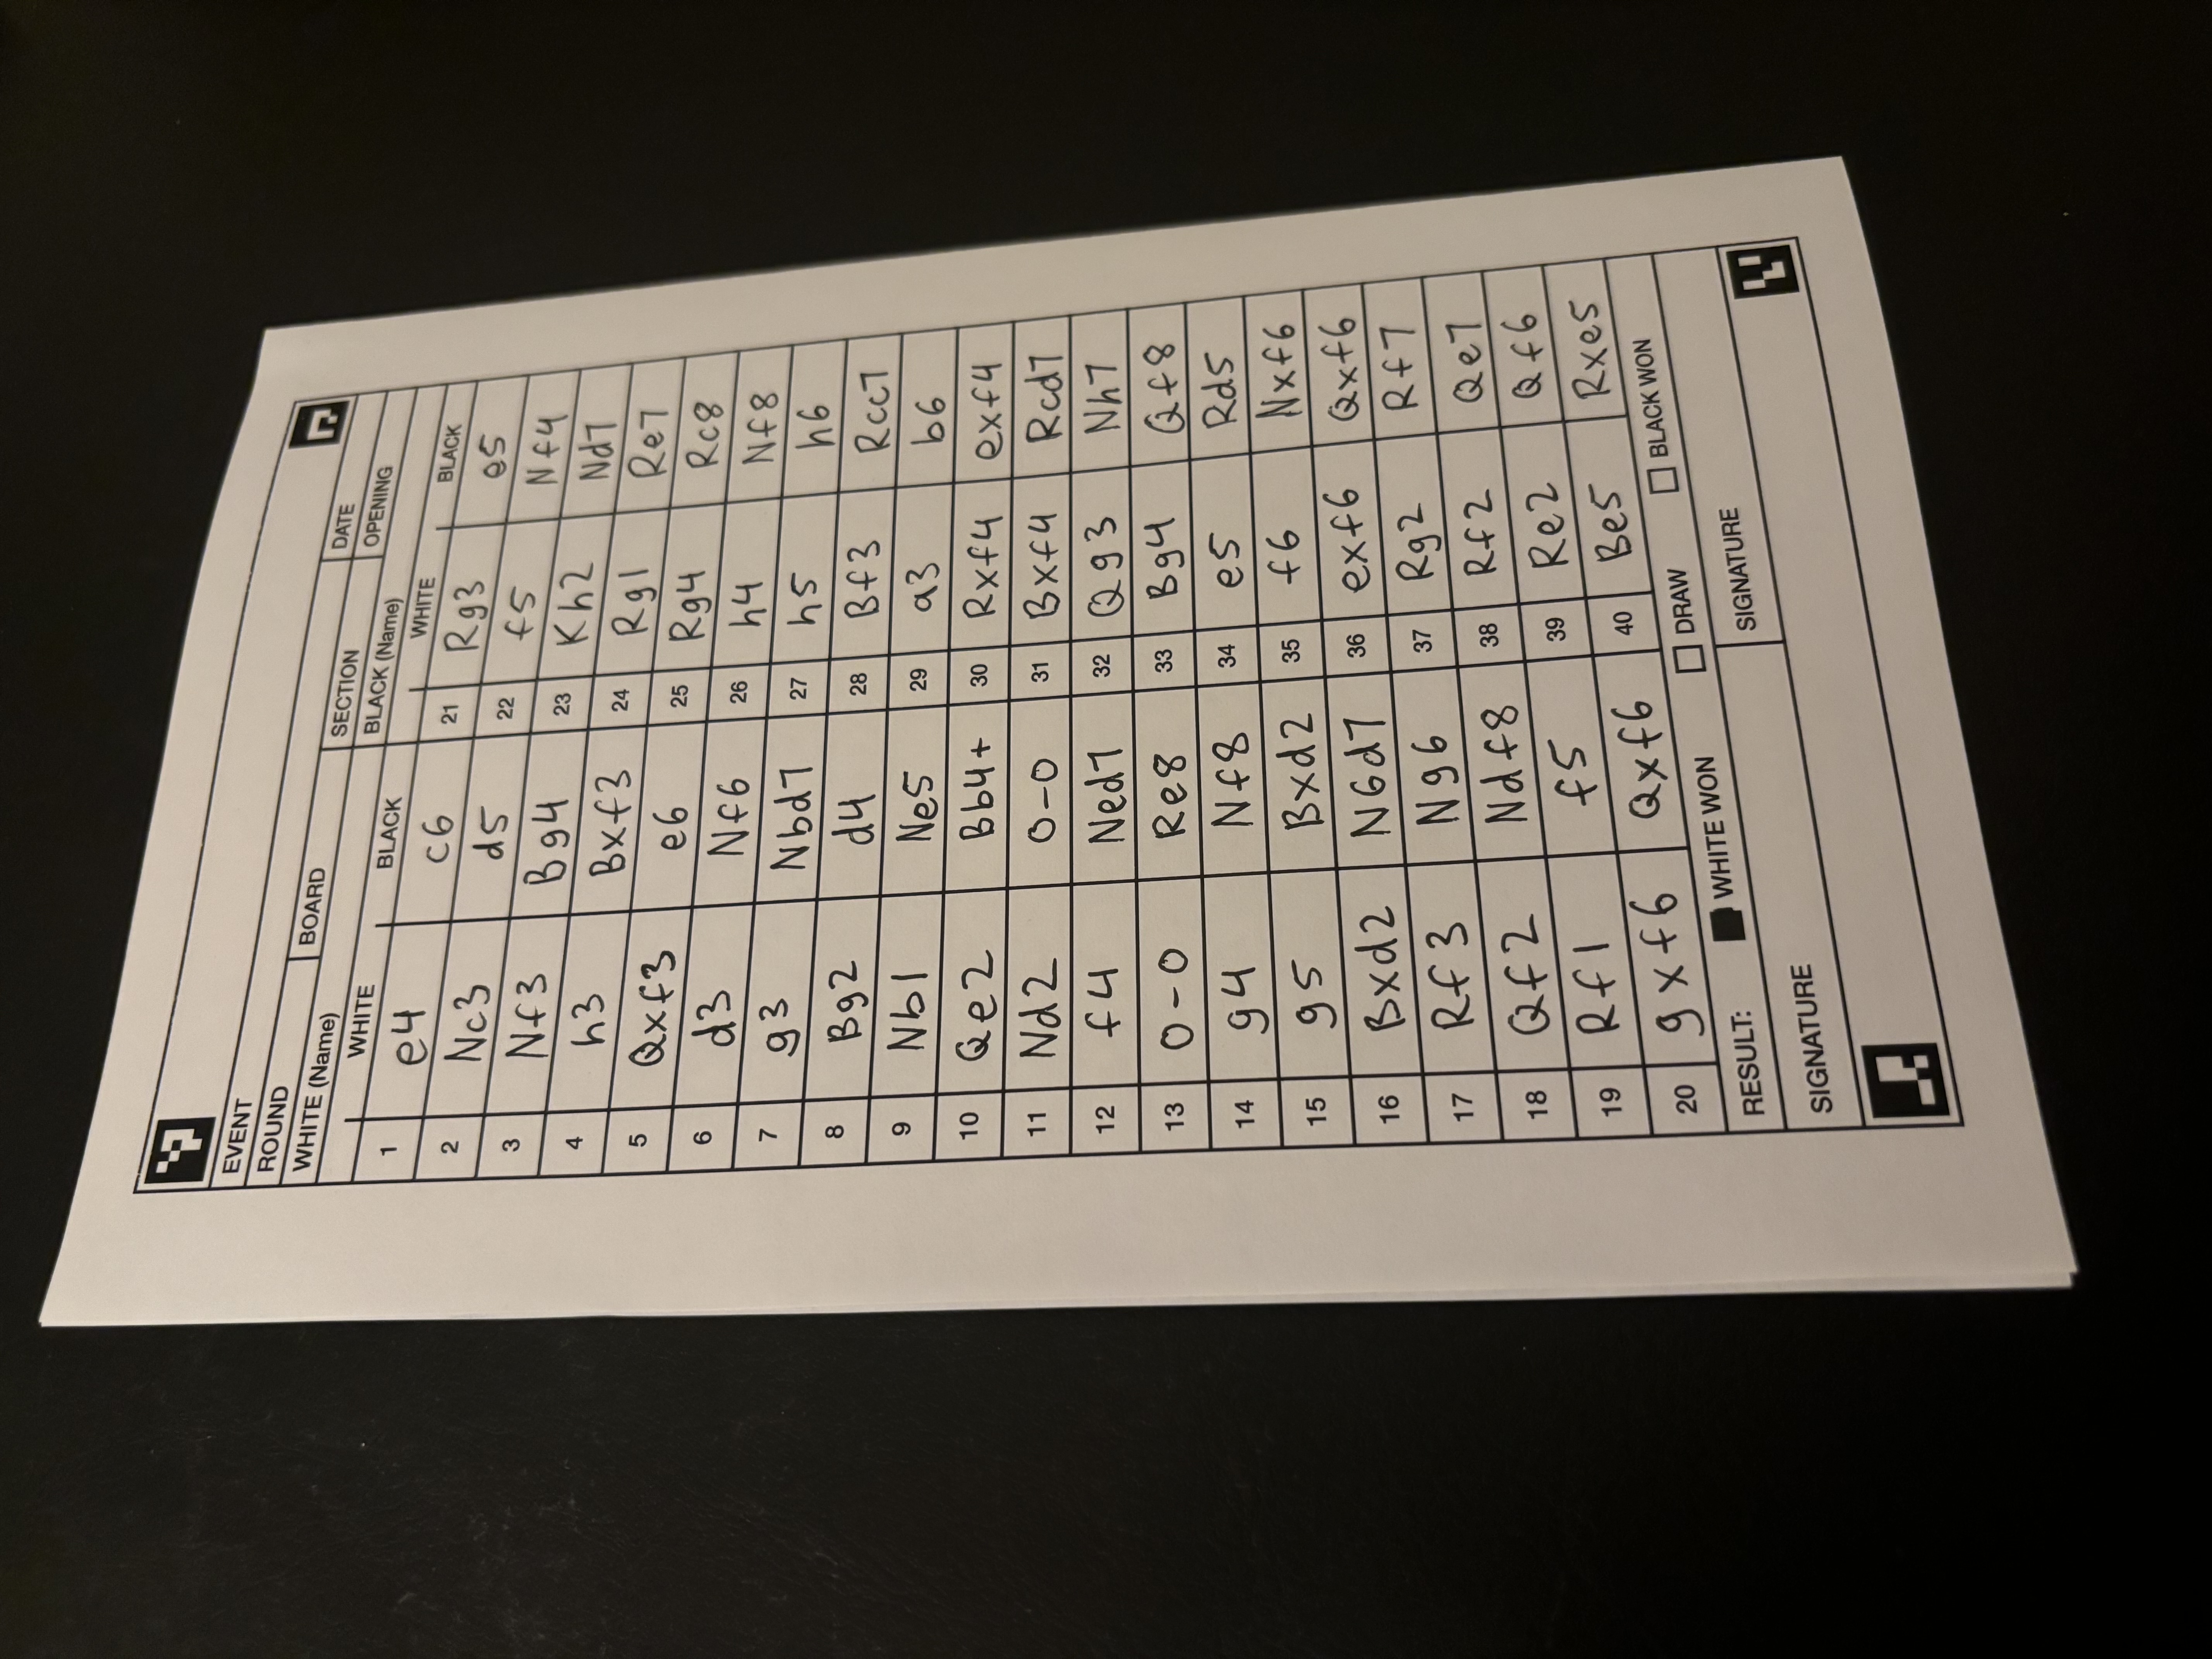 EVENT
ROUND BOARD SECTION DATE
WHITE (Name) BLACK (Name) OPENING
WHITE BLACK
1 e4 c6
2 Nc3 d5
3 Nf3 Bg4
4 h3 Bxf3
5 Qxf3 e6
6 d3 Nf6
7 g3 Nbd7
8 Bg2 d4
9 Nb1 Ne5
10 Qe2 Bb4+
11 Nd2 0-0
12 f4 Ned7
13 0-0 Re8
14 g4 Nf8
15 g5 Bxd2
16 Bxd2 N6d7
17 Rf3 Ng6
18 Qf2 Ndf8
19 Rf1 f5
20 gxf6 Qxf6
WHITE BLACK
21 Rg3 e5
22 f5 Nf4
23 Kh2 Nd7
24 Rg1 Re7
25 Rg4 Rc8
26 h4 Nf8
27 h5 h6
28 Bf3 Rcc7
29 a3 b6
30 Rxf4 exf4
31 Bxf4 Rcd7
32 Qg3 Nh7
33 Bg4 Qf8
34 e5 Rd5
35 f6 Nxf6
36 exf6 Qxf6
37 Rg2 Rf7
38 Rf2 Qe7
39 Re2 Qf6
40 Be5 Rxe5
RESULT: WHITE WON DRAW BLACK WON
SIGNATURE SIGNATURE